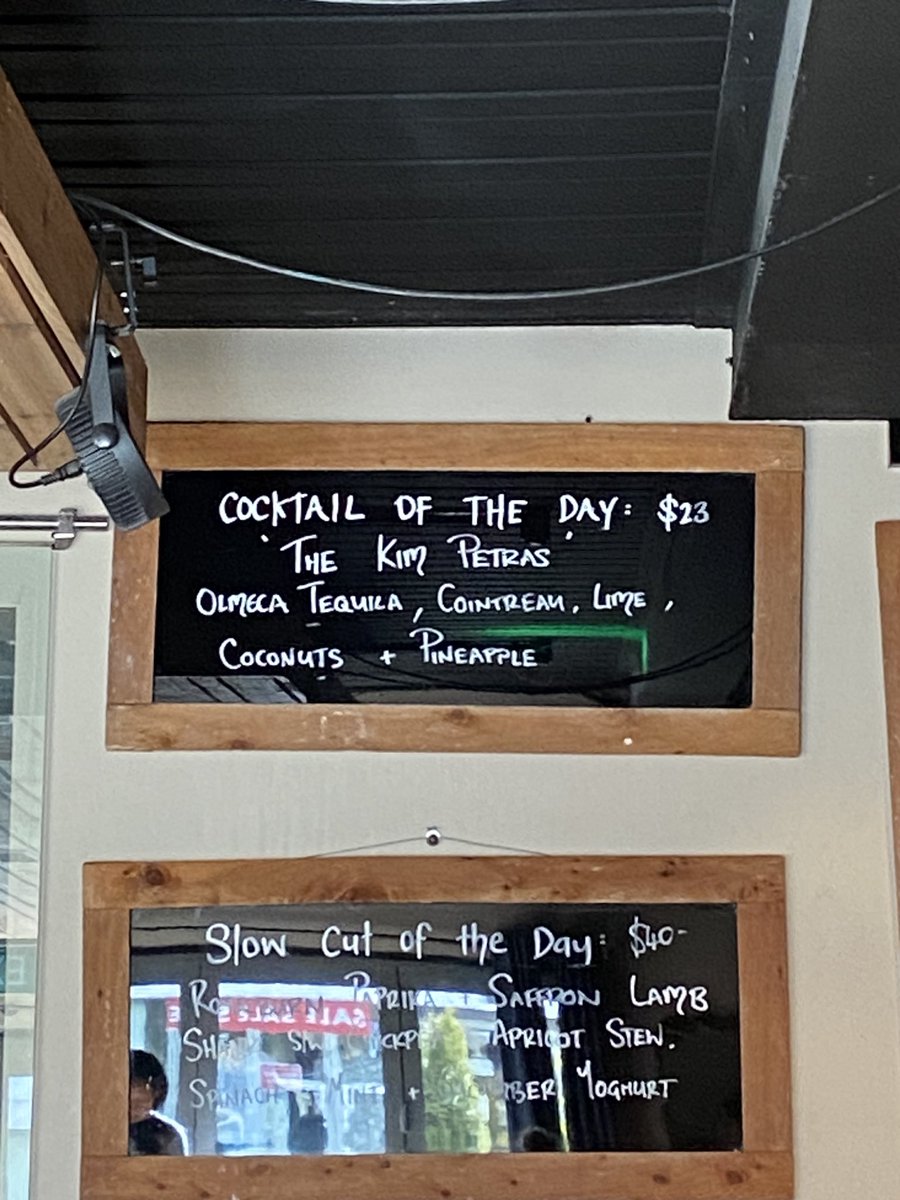 COCKTAIL OF THE DAY: $23
'THE KIM PETRAS'
OLMECA TEQUILA, COINTREAU, LIME,
COCONUTS + PINEAPPLE
Slow Cut of the Day: $40-
PAPRIKA + SAFFRON LAMB
APRICOT STEW.
SPINACH + MINT + YOGHURT